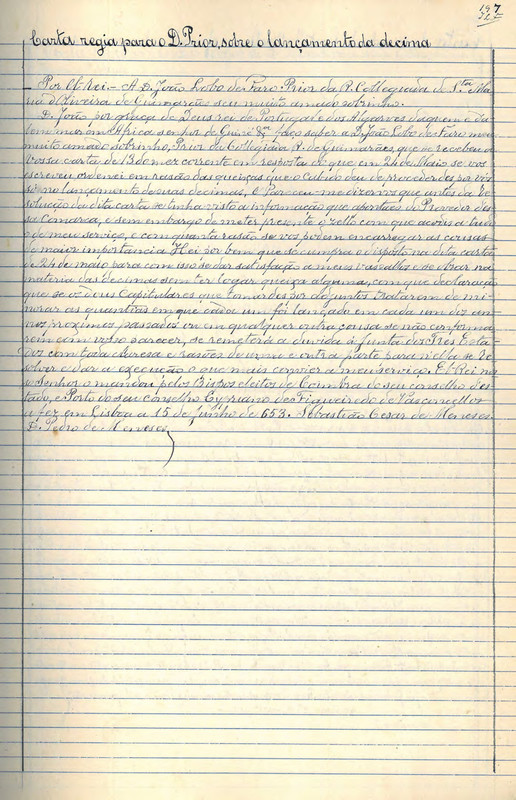 197
Carta regia para o D. Prior, sobre o lançamento da decima
Por El-rei. - A D. João Lobo de Faro Prior da R. Collegiada de S.ta Ma
ria d'Oliveira de Guimarães seu muito amado sobrinho.
D. João por graça de Deus rei de Portugal e dos Algarves daquem e da-
lem mar em Africa senhor de Guiné &ª faço saber a D. João Lobo de Faro meu
muito amado sobrinho, Prior da Collegiada R. de Guimarães, que se recebeu a
vossa carta de 13 do mez corrente em resposta do que em 24 de Maio se vos
escreveu ordenei em rasão das queixas que o Cabido deu de procederdes por vós
só no lançamento de suas decimas, E Pareceu-me dizer-vos que antes da re
solução da dita carta se tinha visto a informação que o Provedor des
sa Comarca, e sem embargo de me ter presente o zello com que acodis a tudo
o do meu serviço, e com quanta rasão se vos podem encarregar as cousas
de maior importancia Hei por bem que se cumpra o disposto na dita carta
de 24 de maio para com isso se dar satisfação a meus vassallos e se obrar na
materia das decimas sem ter logar queixa alguma, com que declaração
que se vós e os Capitulares que tomardes por adjuntos tratarem de mi-
norar as quantias em que cada um foi lançado em cada um dez an-
nos proximos passados ou em qualquer outra cousa se não conforma
rem com vosso parecer, se remetterá a duvida á Junta dos Tres Esta-
dos com toda a clareza e rasões de uma e outra parte para n'ella se re
solver e dar a execução o que mais convier a meu serviço. El Rei nos
so Senhor o mandou pelos Bispos eleitos de Coimbra do seu conselho d'es
tado, e Porto do seu conselho Cypriano de Figueiredo de Vasconcellos
a fez em Lisboa a 15 de Junho de 653. Sebastião Cesar de Meneses.
D. Pedro de Meneses